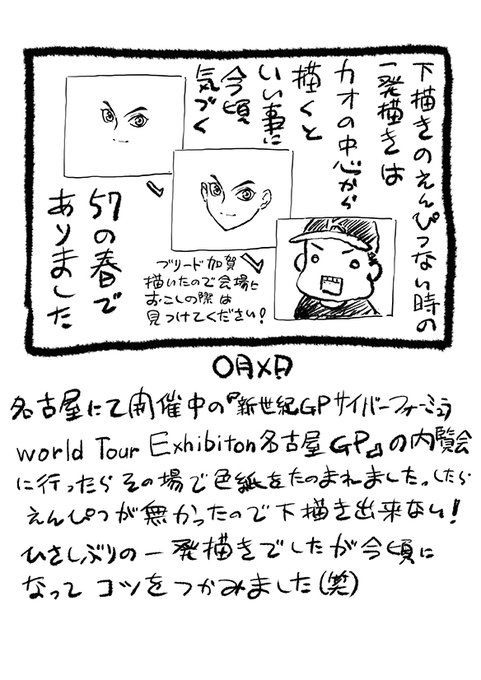 下描きのえんぴつない時の
一発描きは
カオの中心から
描くと
いい事に
今頃
気づく
57の春で
ありました
ブリード加賀
描いたので会場に
おこしの際は
見つけてください!
〇月×日
名古屋にて開催中の『新世紀GPサイバーフォーミュラ
world Tour Exhibiton名古屋GP』の内覧会
に行ったらその場で色紙をたのまれました。したら
えんぴつが無かったので下描き出来ない!
ひさしぶりの一発描きでしたが今頃に
なってコツをつかみました(笑)